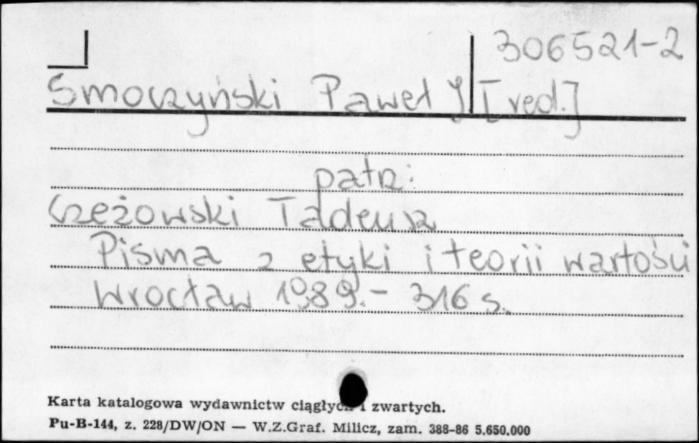 306521-2
Smoczyński Paweł J [red.]
patrz:
Czeżowski Tadeusz
Pisma z etyki i teorii wartości
Wrocław 1989.- 316 s.
Karta katalogowa wydawnictw ciągłych i zwartych.
Pu-B-144, z. 228/DW/ON — W.Z.Graf. Milicz, zam. 388-86 5.650.000